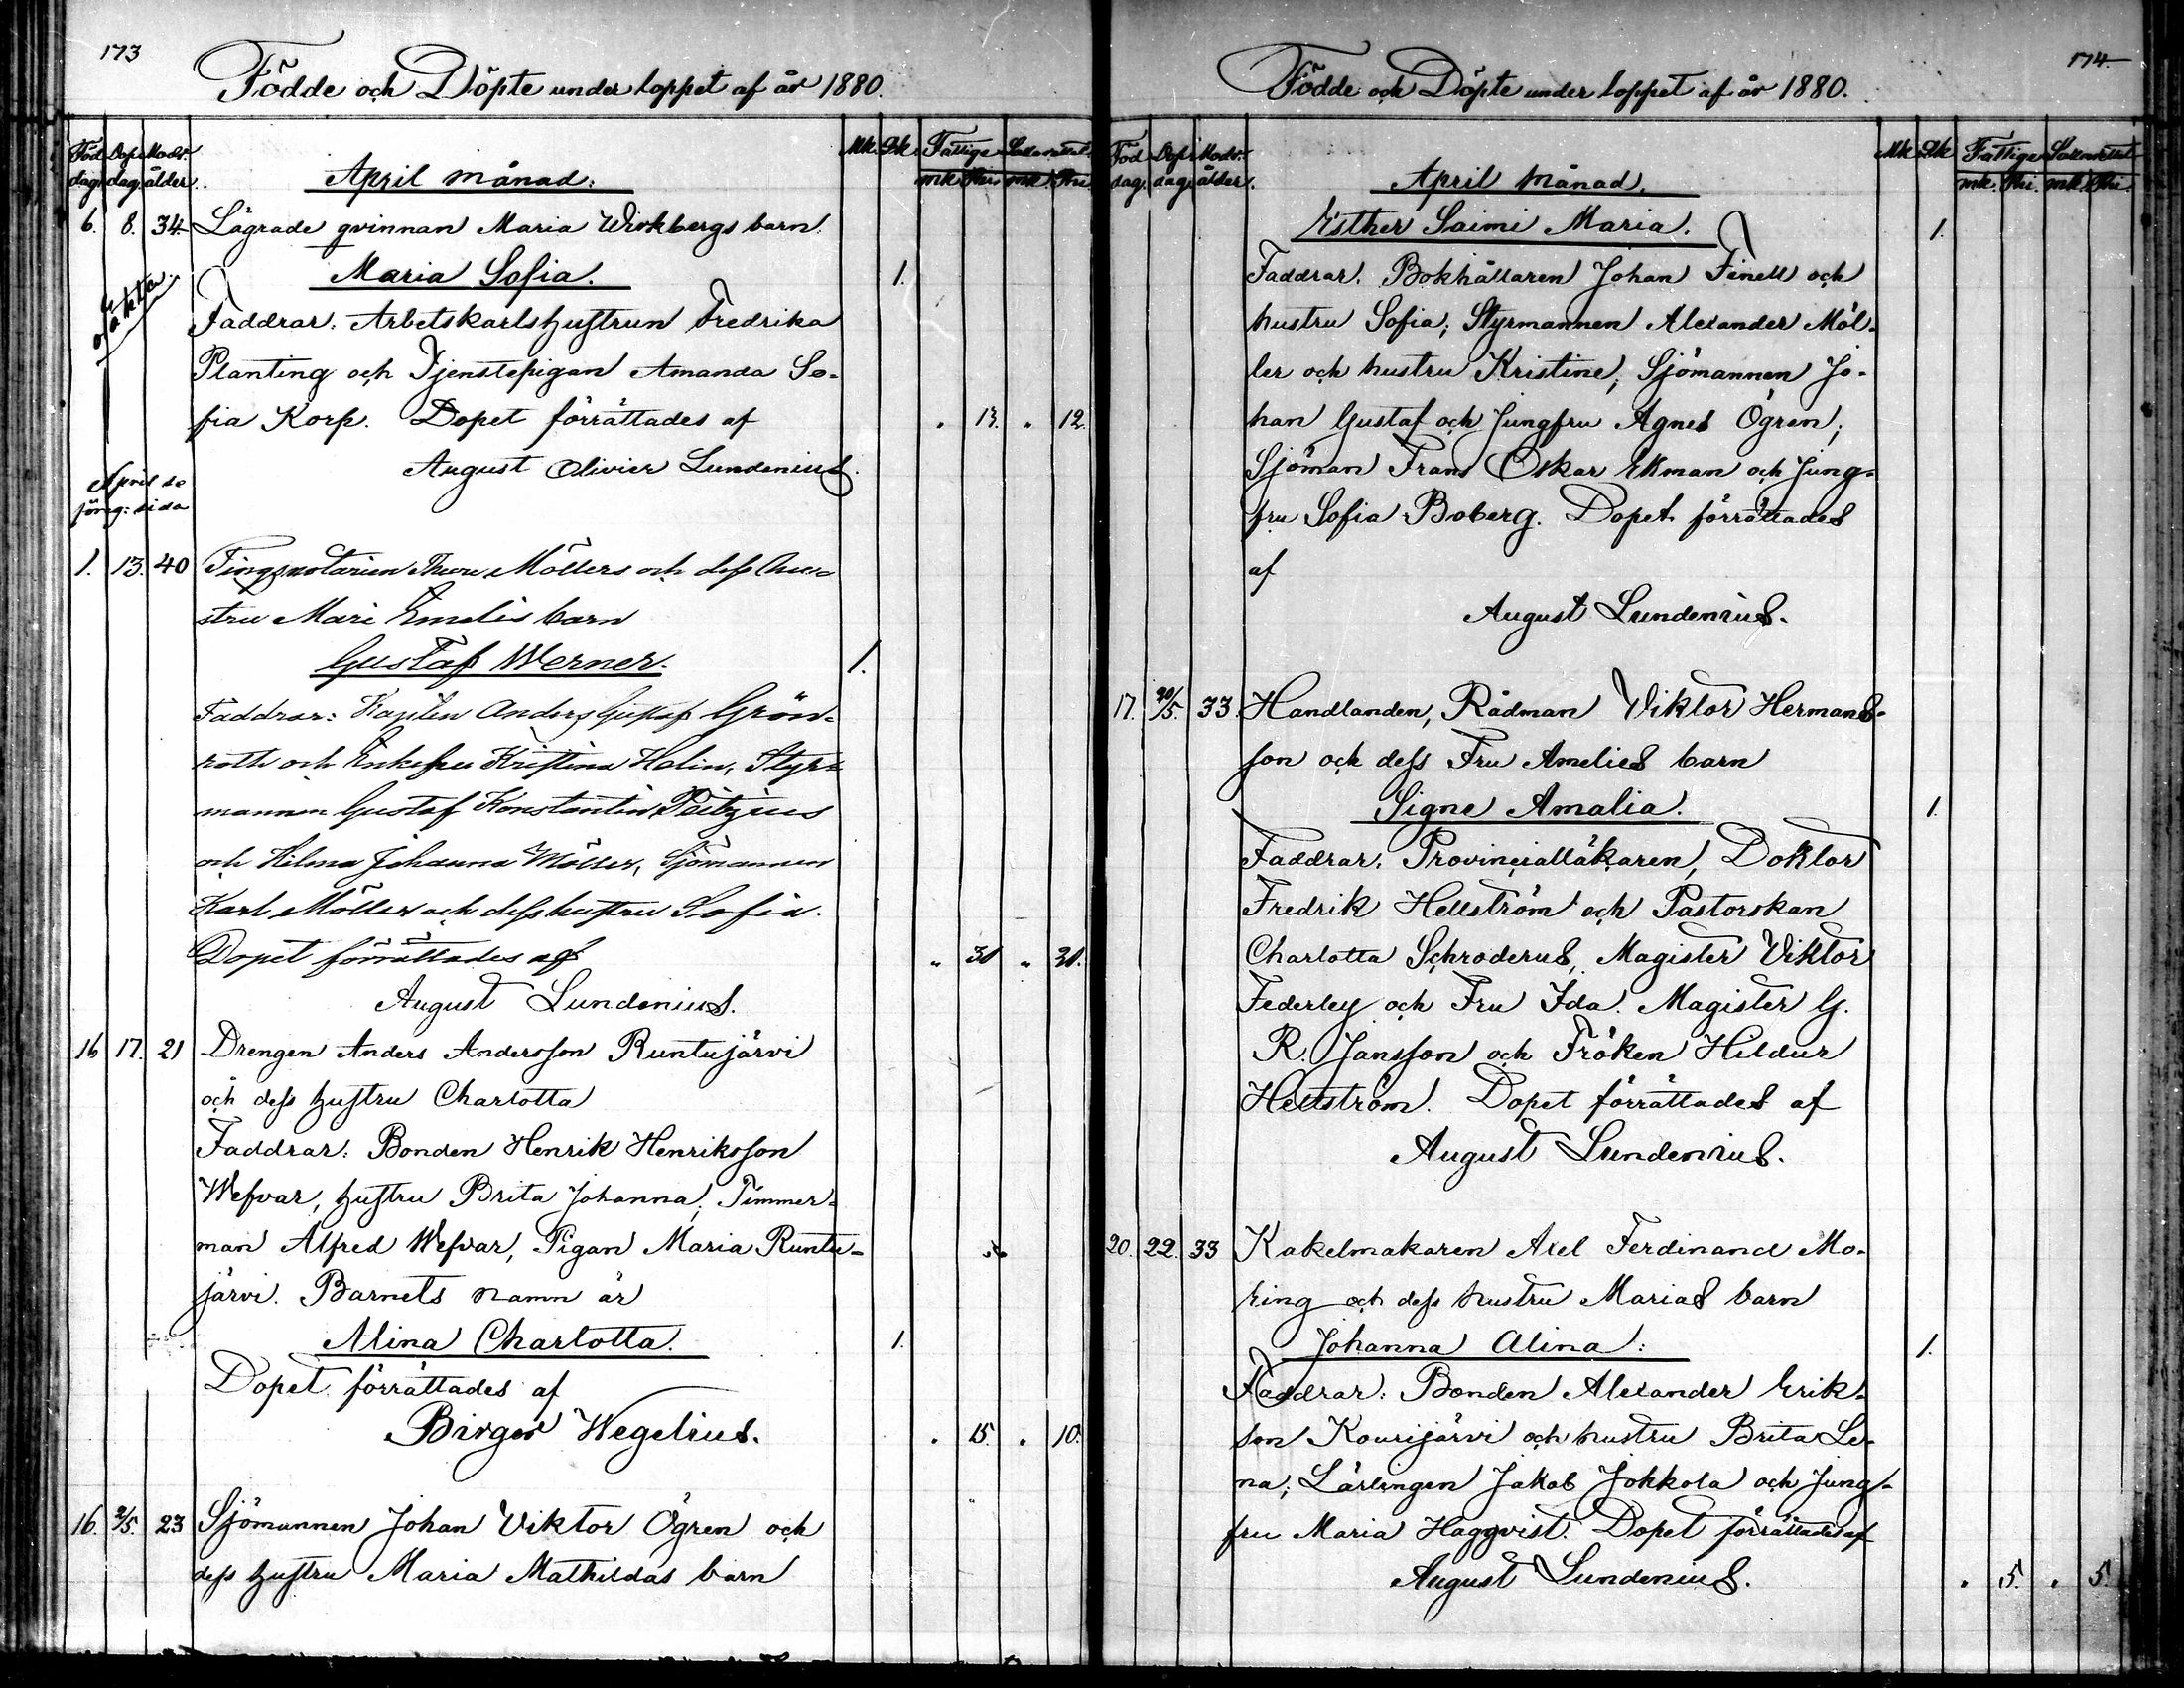 173
Födde och Döpte under loppet af år 1880.
Föd. dag. Dops dag. Modr. ålder.
April månad.
Mk Qk Fattige mk Pni mk Pni
6. 8. 34 Lägrade qvinnan Maria Wirkbergs barn
oäkta
Maria Sofia. 1.
Faddrar: Arbetskarlshustrun Fredrika
Planting och Tjenstepigan Amanda So-
fia Korp. Dopet förrättades af " 13. " 12.
August Olivier Lundenius.
April se
föreg: sida
1. 13. 40 Tingsnotarien Thure Möllers och dess hu-
stru Mari Emelis barn
Gustaf Werner. 1.
Faddrar: Kapten Anders Gustaf Grön-
roth och Enkefru Kristina Helin, Styr-
mannen Gustaf Konstantin
och Hilma Johanna Möller, Sjömannen
Karl Möller och dess hustru Sofia.
Dopet förrättades af " 30 " 30.
August Lundenius.
16 17. 21 Drengen Anders Andersson Runtujärvi
och dess hustru Charlotta
Faddrar: Bonden Henrik Henriksson
Wefvar, hustru Brita Johanna; Timmer-
man Alfred Wefvar, Pigan Maria Runtu-
järvi. Barnets namn är
Alina Charlotta. 1.
Dopet förrättades af
Birger Wegelius. " 15. " 10.
16. 2/5. 23 Sjömannen Johan Viktor Ögren och
dess hustru Maria Mathildas barn
174
Födde och Döpte under loppet af år 1880.
Föd. dag. Dops dag. Modr. ålder.
April månad.
Mk Qk Fattige mk. Pni. mk Pni.
Esther Saimi Maria. 1.
Faddrar: Bokhållaren Johan Finell och
hustru Sofia; Styrmannen Alexander Möl-
ler och hustru Kristine; Sjömannen Jo-
han Gustaf och Jungfru Agnes Ögren;
Sjöman Frans Oskar Ekman och Jung-
fru Sofia Boberg. Dopet förrättades
af
August Lundenius.
17. 20/5. 33. Handlanden, Rådman Viktor Hermans-
son och dess Fru Amelies barn
Signe Amalia. 1.
Faddrar: Provincialläkaren, Doktor
Fredrik Hellström och Pastorskan
Charlotta Schroderus, Magister Viktor
Federley och Fru Ida. Magister G.
R. Jansson och Fröken Hildur
Hellström. Dopet förrättades af
August Lundenius.
20. 22. 33 Kakelmakaren Axel Ferdinand Mo-
ring och dess hustru Marias barn
Johanna Alina: 1.
Faddrar: Bonden Alexander Erik-
son Kourijärvi och hustru Brita Le-
na; Lärlingen Jakob Jokkola och Jung-
fru Maria Haggvist. Dopet förrättades af
August Lundenius. " 5. " 5.